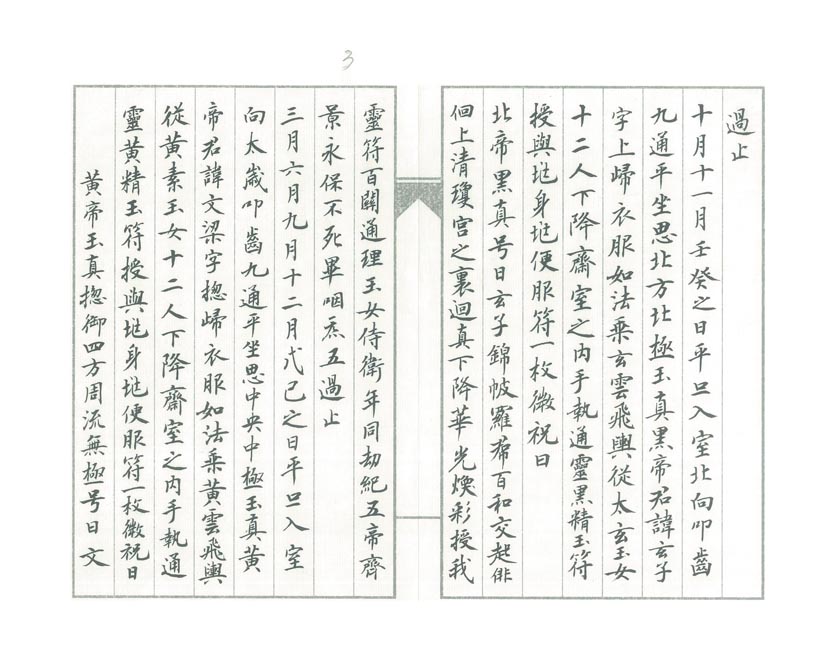 3
過止
十月十一月壬癸之日平旦入室北向叩齒
九通平坐思北方北極玉真黑帝君諱玄子
字上歸衣服如法乘玄雲飛輿從太玄玉女
十二人下降齋室之內手執通靈黑精玉符
授與兆身兆便服符一枚微祝曰
北帝黑真号曰玄子錦帔羅帬百和交起俳
佪上清瓊宮之裏迴真下降華光煥彩授我
靈符百關通理玉女侍衛年同劫紀五帝齊
景永保不死畢咽炁五過止
三月六月九月十二月戊己之日平旦入室
向太歲叩齒九通平坐思中央中極玉真黃
帝君諱文梁字揔歸衣服如法乘黃雲飛輿
從黃素玉女十二人下降齋室之內手執通
靈黃精玉符授與兆身兆便服符一枚微祝曰
黃帝玉真揔御四方周流無極号曰文